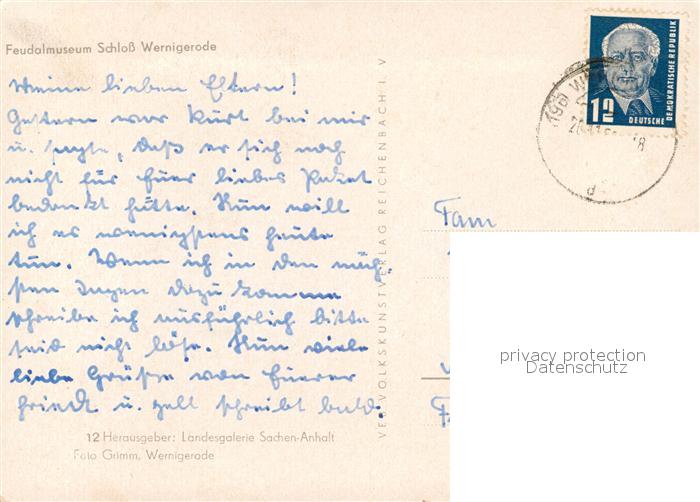 Feudalmuseum Schloß Wernigerode
Meine lieben Eltern!
Gestern war Kurt bei mir
u. sagte, daß er sich noch
nicht für Euer liebes Paket
bedankt hätte. Nun will
ich es wenigstens heute
tun. Wenn ich in den näch-
sten Tagen dazu komme
schreibe ich ausführlich bitte
seid nicht böse. Nun viele
liebe Grüße von Eurer
u. schreibt bald.
12 Herausgeber: Landesgalerie Sachen-Anhalt
Foto Grimm, Wernigerode
VEB VOLKSKUNSTVERLAG REICHENBACH I. V
12
DEUTSCHE
DEMOKRATISCHE REPUBLIK
Fam
privacy protection
Datenschutz